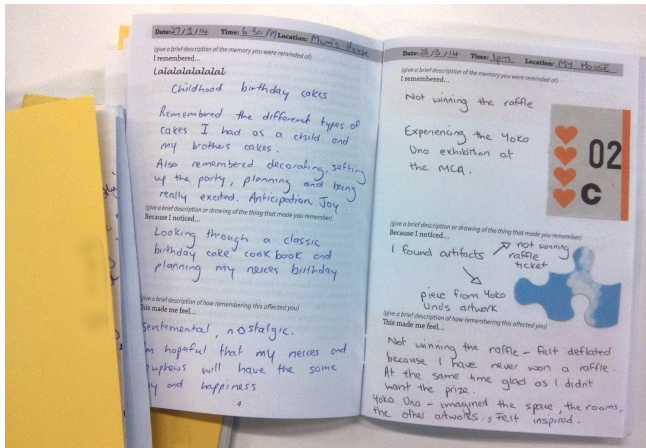 Date: 27/3/14 Time: 6 30 PM Location: Mum's House
(give a brief description of the memory you were reminded of)
I remembered...
Lalalalalalalal
Childhood birthday cakes
Remembered the different types of
cakes I had as a child and
my brothers cakes.
Also remembered decorating, setting
up the party, planning and being
really excited. Anticipation Joy.
(give a brief description or drawing of the thing that made you remember)
Because I noticed...
Looking through a classic
birthday cake cook book and
planning my neices birthday
(give a brief description of how remembering this affected you)
This made me feel...
sentemental, nostalgic.
hopeful that my neices and
will have the same
and happiness
4
Date: /3/14 Time: 1pm Location: My House
(give a brief description of the memory you were reminded of)
I remembered...
Not winning the raffle
Experiencing the Yoko
Uno exhibition at
the MCA.
02
C
(give a brief description or drawing of the thing that made you remember)
Because I noticed...
I found artifacts
not winning
raffle
ticket
piece from Yoko
Uno's artwork
(give a brief description of how remembering this affected you)
This made me feel...
Not winning the raffle - felt deflated
because I have never won a raffle.
At the same time glad as I didn't
want the prize.
Yoko Uno - imagined the space, the rooms,
the other artworks. Felt inspired.